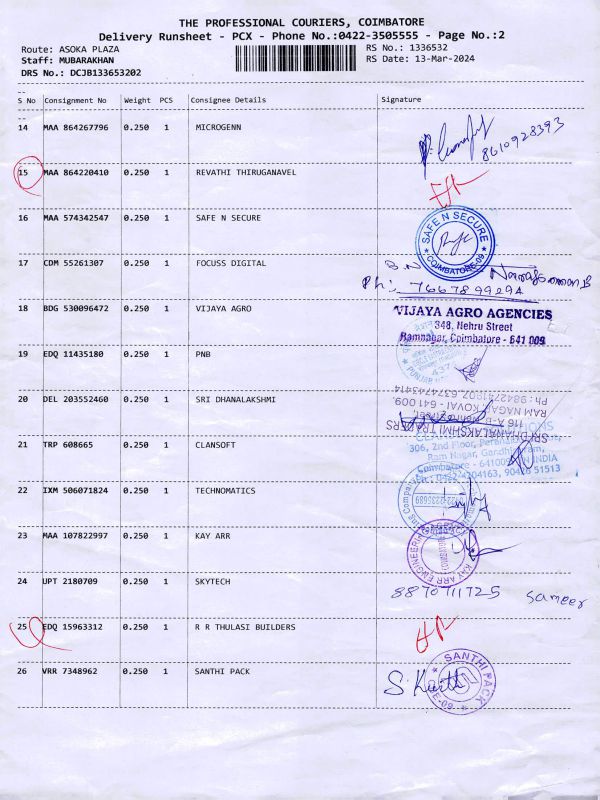 THE PROFESSIONAL COURIERS, COIMBATORE
Delivery Runsheet - PCX - Phone No.:0422-3505555 - Page No.:2
Route: ASOKA PLAZA
RS No.: 1336532
Staff: MUBARAKHAN
RS Date: 13-Mar-2024
DRS No.: DCJB133653202
S No Consignment No Weight PCS Consignee Details Signature
14 MAA 864267796 0.250 1 MICROGENN
8610928393
15 MAA 864220410 0.250 1 REVATHI THIRUGANAVEL
16 MAA 574342547 0.250 1 SAFE N SECURE
SAFE N SECURE
COIMBATORE-09
17 CDM 55261307 0.250 1 FOCUSS DIGITAL
Ph: 7667899294
18 BDG 530096472 0.250 1 VIJAYA AGRO
VIJAYA AGRO AGENCIES
348, Nehru Street
Ramnagar, Coimbatore - 641 009
19 EDQ 11435180 0.250 1 PNB
20 DEL 203552460 0.250 1 SRI DHANALAKSHMI
SRI DHANALAKSHMI TRADERS
RAM NAGAR, KOVAI - 641 009.
21 TRP 608665 0.250 1 CLANSOFT
306, 2nd Floor,
Ram Nagar,
Coimbatore - 641009
22 IXM 506071824 0.250 1 TECHNOMATICS
23 MAA 107822997 0.250 1 KAY ARR
KAY ARR
24 UPT 2180709 0.250 1 SKYTECH
8870711725 Sameer
25 EDQ 15963312 0.250 1 R R THULASI BUILDERS
26 VRR 7348962 0.250 1 SANTHI PACK
S.Karthi
SANTHI PACK